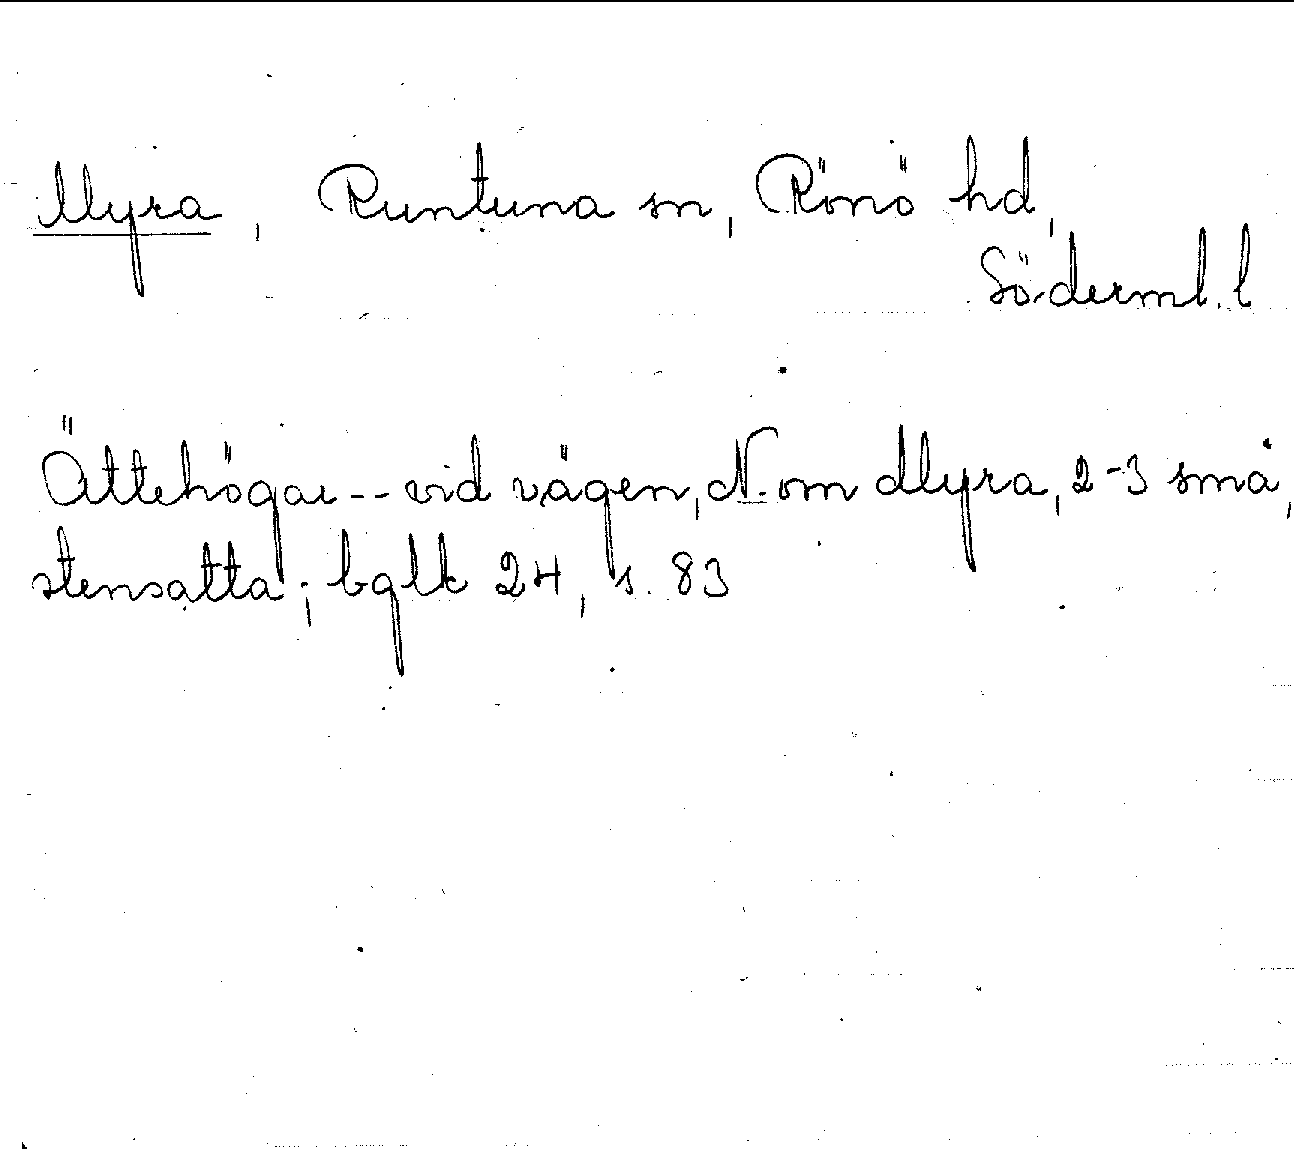 Myra, Runtuna sn, Rönö hd,
Söderml. l
Ättehögar -- vid vägen, N. om Myra, 2-3 små,
stensatta; bglk 24, s. 83